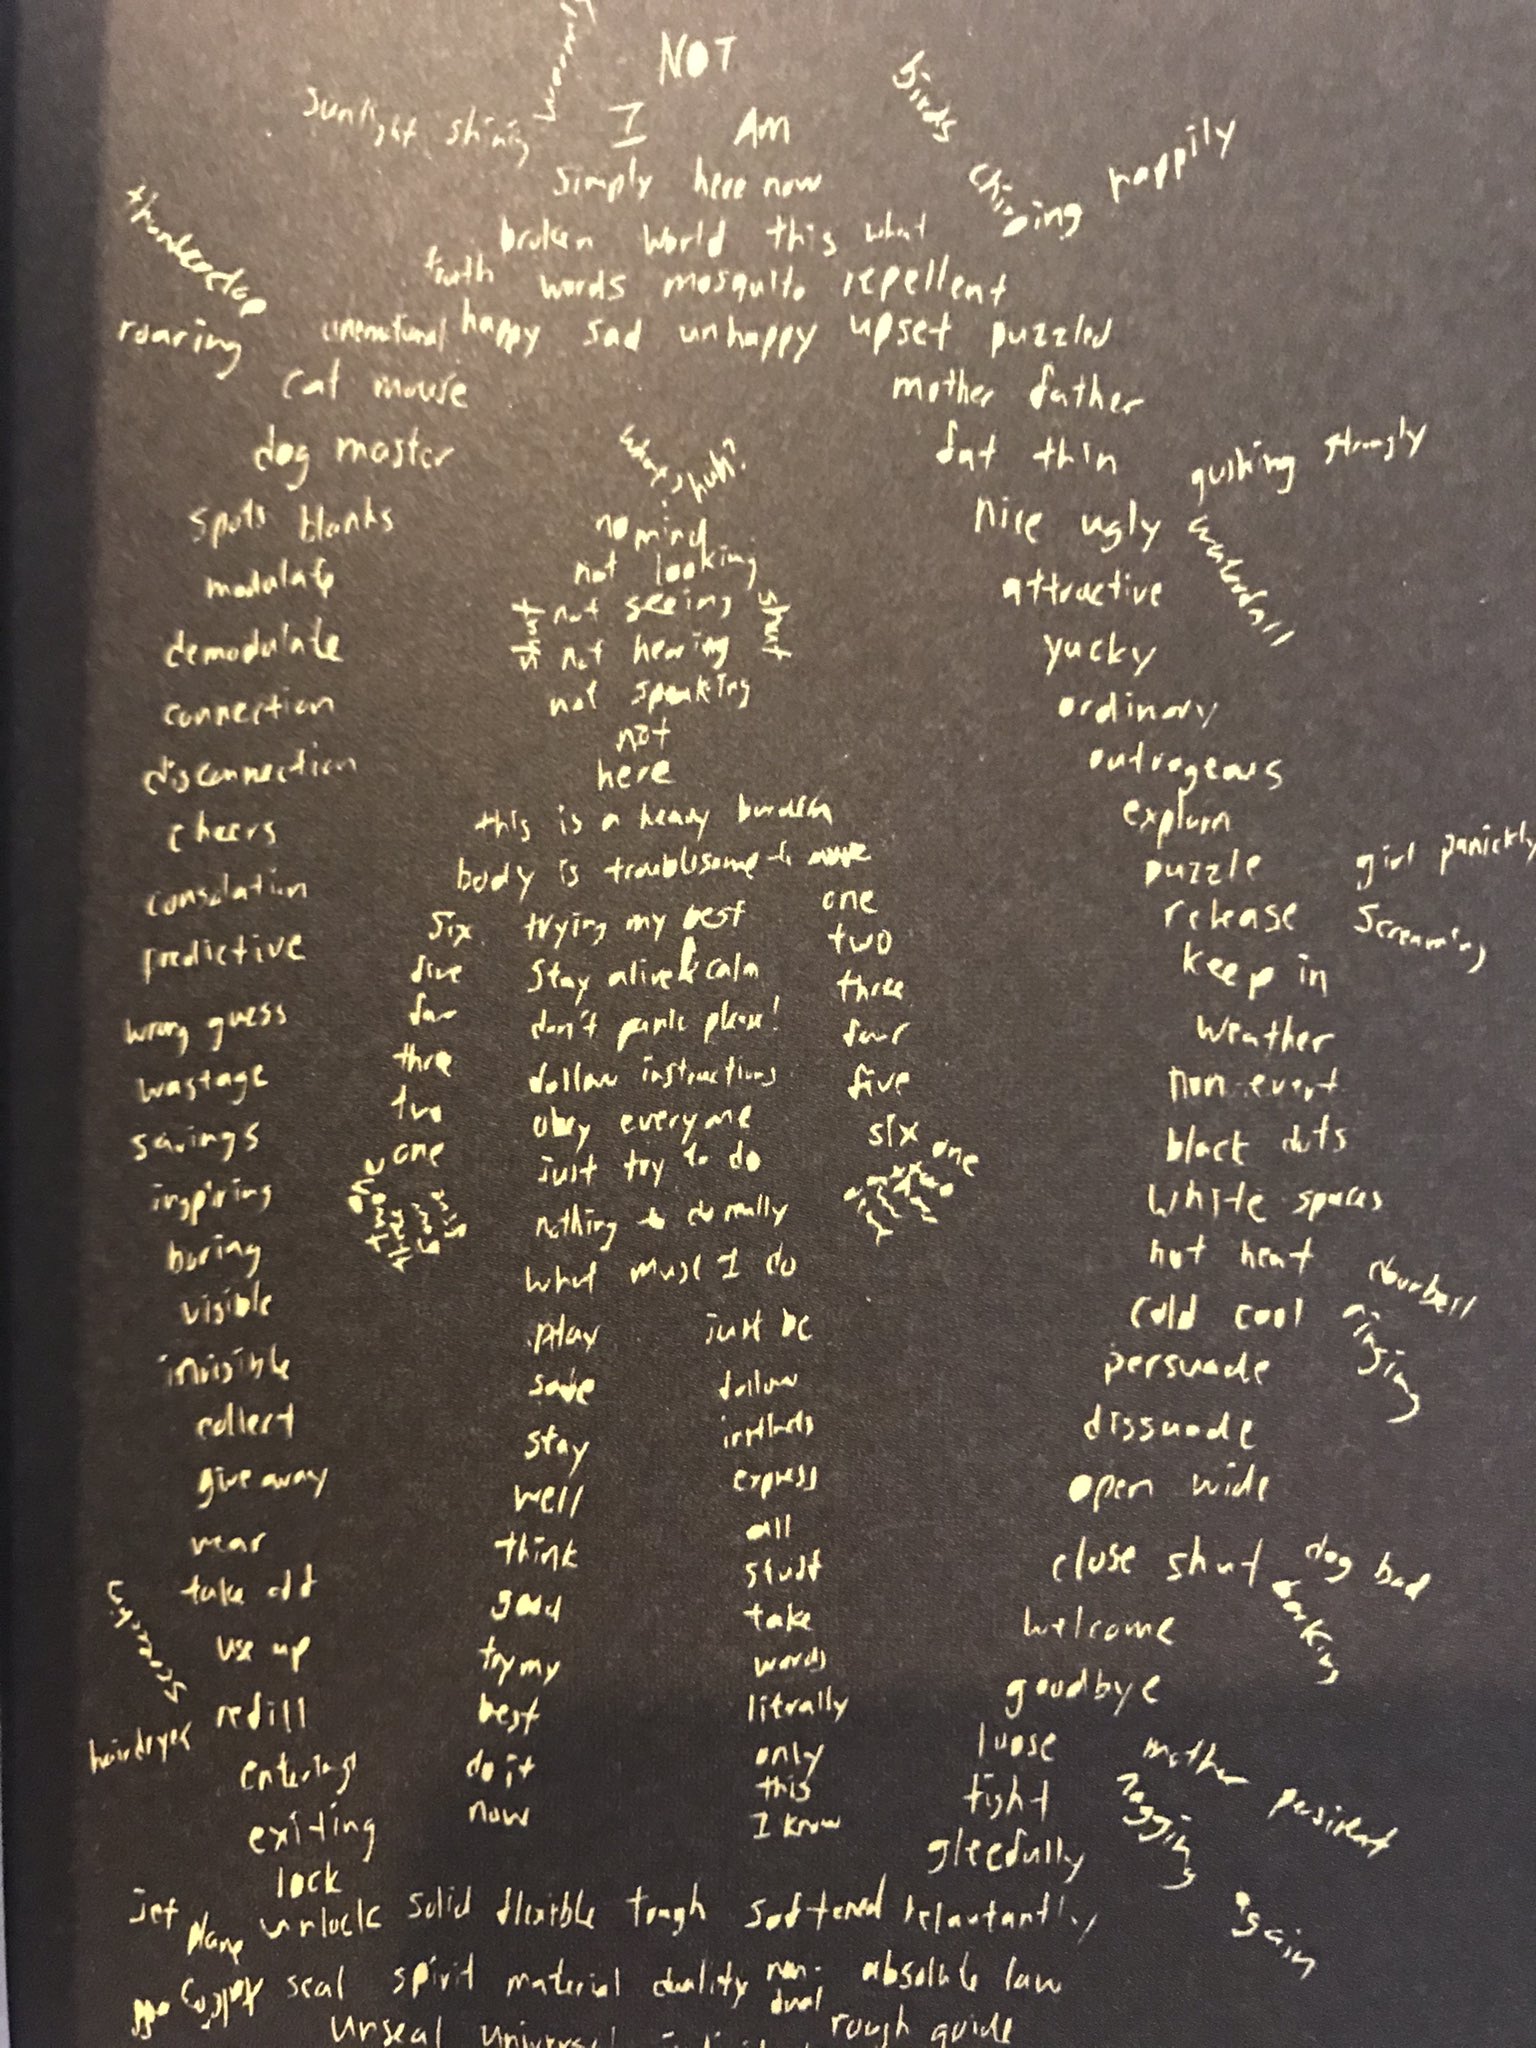 NOT
I AM
sunlight shinig warmly
birds chirping happily
simply here now
broken world this what
truth words mosquito repellent
thunderclap
roaring
unemotional happy sad unhappy upset puzzled
cat mouse
mother father
dog master
fat thin
gushing strongly
waterfall
what? huh?
spots blanks
no mind
nice ugly
modulate
not looking
attractive
truth
not seeing
shut
demodulate
not hearing
yucky
connection
not speaking
ordinary
not
disconnection
here
outrageous
cheers
this is a heavy burden
explain
consolation
body is troublesome to move
puzzle
girl panickly
screaming
six trying my best one
release
predictive
five stay alive & calm two
keep in
wrong guess
four don't panic please! three
weather
wastage
three follow instructions four
non-event
savings
two obey everyone five
black dots
one just try to do six
one
inspiring
nothing to do really
white spaces
boring
what must I do
hot heat
doorbell
ringing
visible
play just be
cold cool
invisible
safe follow
persuade
collect
stay
dissuade
give away
well express
open wide
wear
think all
close shut
dog bad
barking
take off
good stuff
welcome
use up
try my take
goodbye
screeching
hairdryer
refill
best words
loose
entering
do it literally
tight
mother persistent
nagging
again
exiting
now only
gleefully
this
I know
lock
jet plane
unlock solid flexible tough softened
taking off
seal spirit material duality non-dual absolute law
unseal universal
rough guide